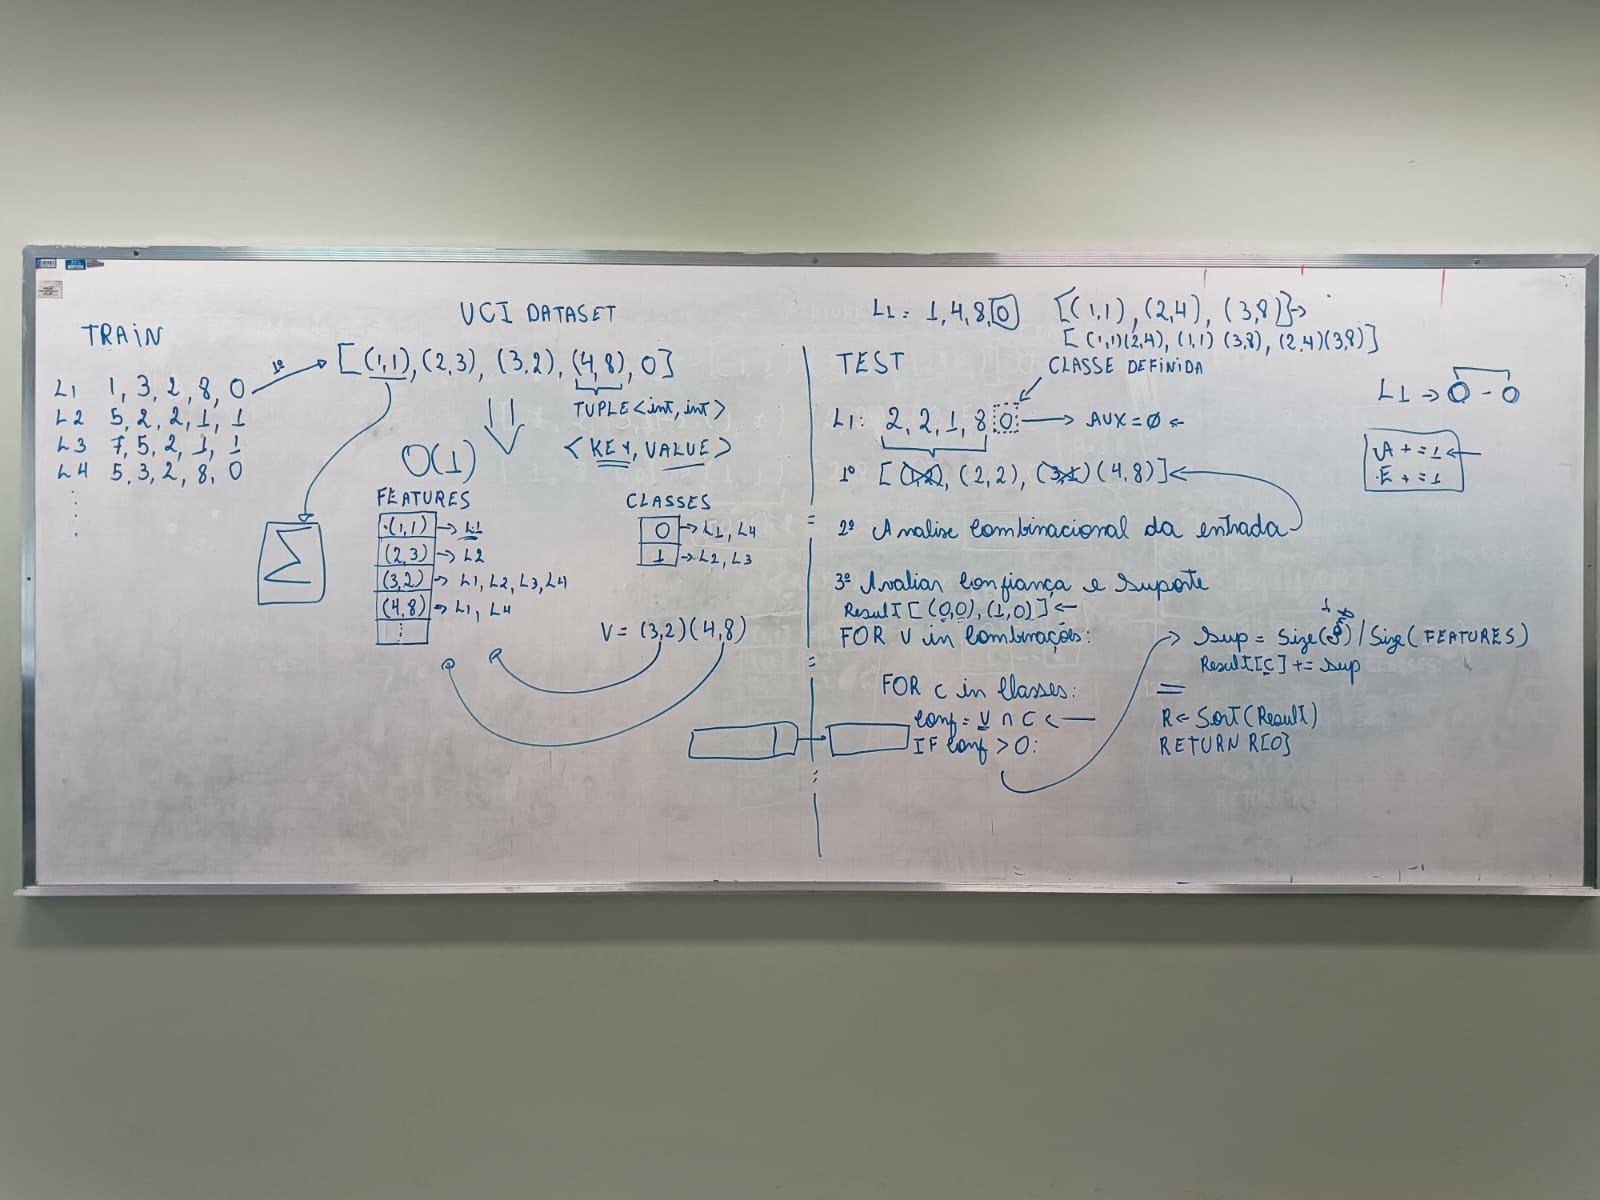 UCI DATASET
TRAIN
L1 1, 3, 2, 8, 0
L2 5, 2, 2, 1, 1
L3 7, 5, 2, 1, 1
L4 5, 3, 2, 8, 0
1º
[(1,1), (2,3), (3,2), (4,8), 0]
TUPLE<int, int>
<KEY, VALUE>
O(1)
FEATURES
(1,1) → L1
(2,3) → L2
(3,2) → L1, L2, L3, L4
(4,8) → L1, L4
CLASSES
0 → L1, L4
1 → L2, L3
Σ
V = (3,2)(4,8)
L1 = 1, 4, 8, 0 [(1,1), (2,4), (3,8)] →
[(1,1)(2,4), (1,1)(3,8), (2,4)(3,8)]
TEST
CLASSE DEFINIDA
L1: 2, 2, 1, 8 0 → AUX = Ø ←
1º [(1,2), (2,2), (3,1) (4,8)] ←
2º Analise Combinacional da entrada
3º Avaliar Confiança e Suporte
Result [(0,0), (1,0)] ←
FOR V in Combinações:
FOR C in Classes:
Conf = V ∩ C ←
IF Conf > 0:
→ Sup = Size( ) / Size(FEATURES)
Result[C] += Sup
R ← Sort(Result)
RETURN R[0]
L1 → 0 - 0
A += 1 ←
E += 1